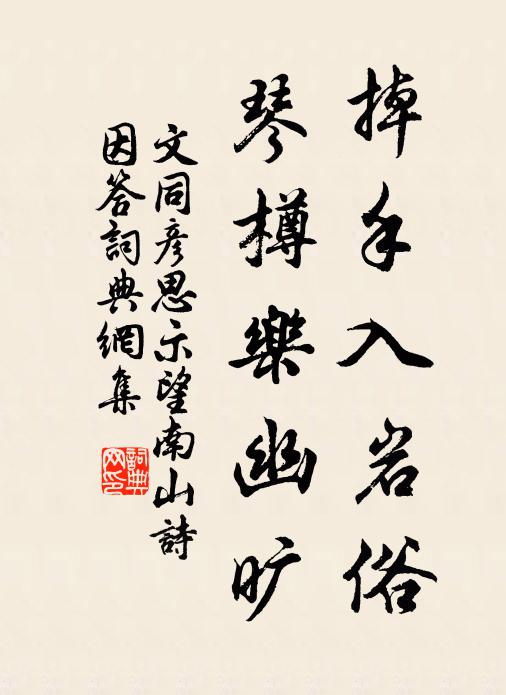 掉手入岩俗
琴樽樂幽旷
文同彦思示望南山詩
因答詞典網集
詞典网印